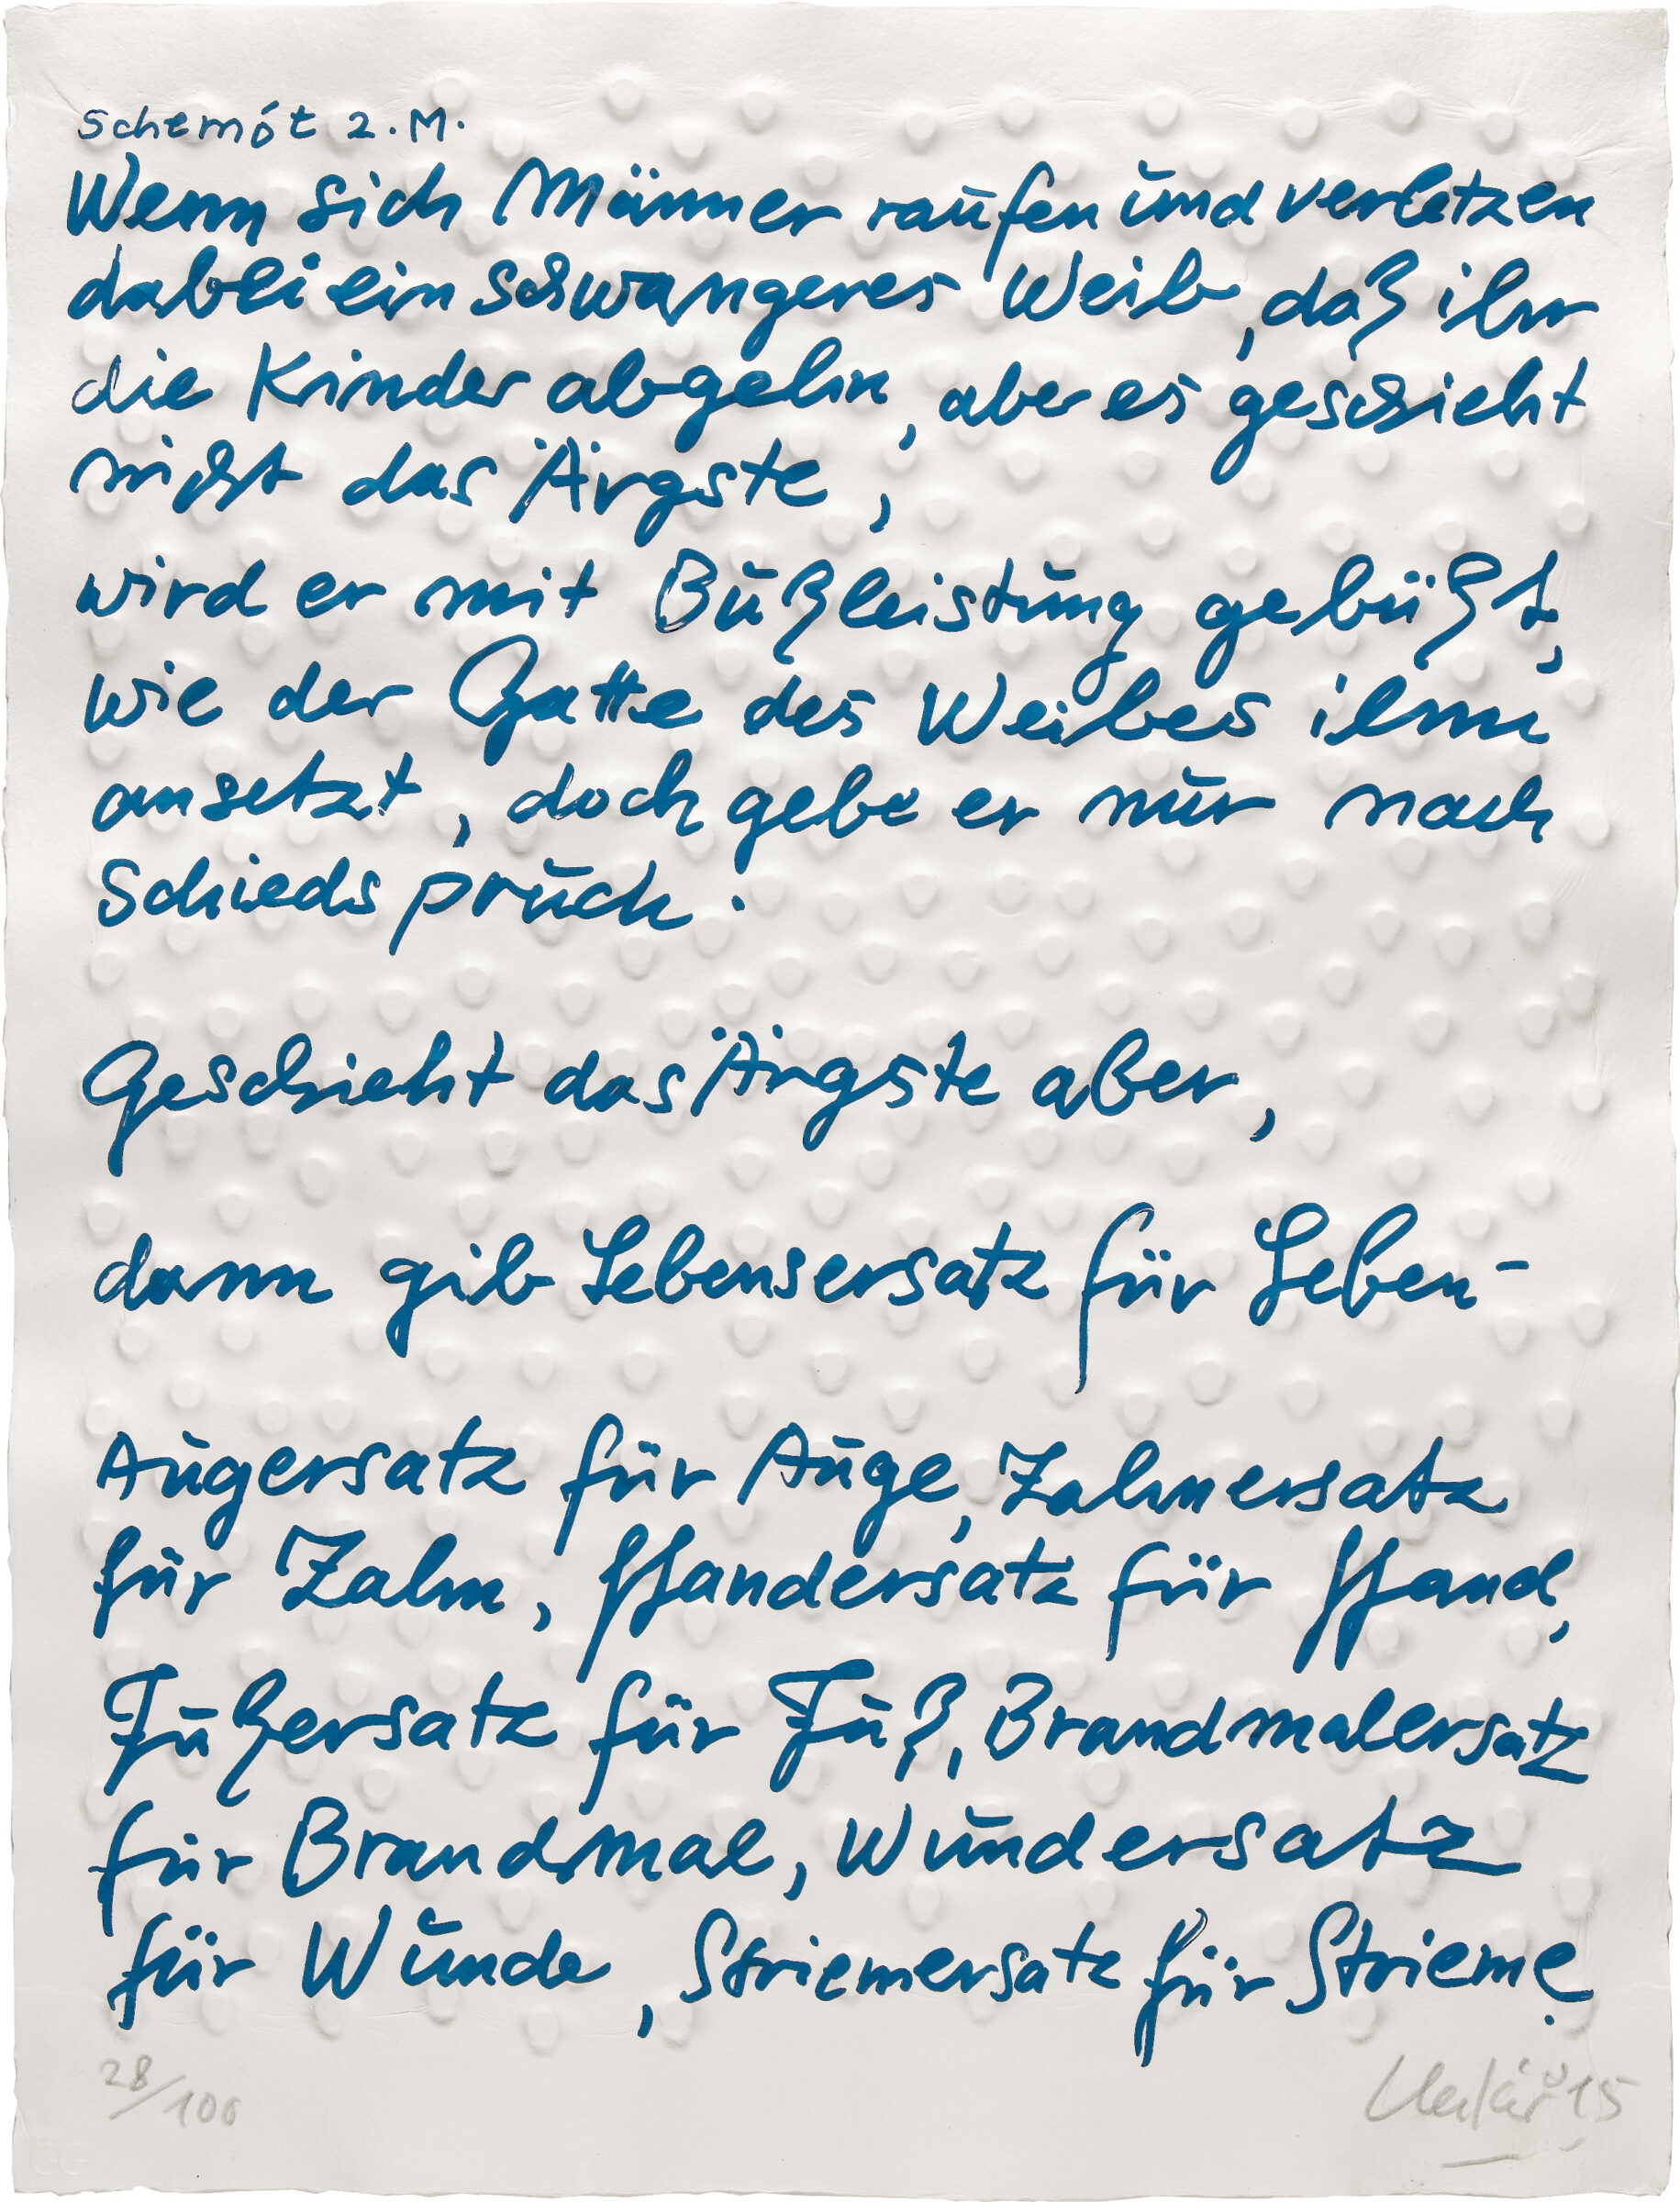 Schemót 2. M.
Wenn sich Männer raufen und verletzen
dabei ein schwangeres Weib, daß ihr
die Kinder abgehn, aber es geschieht
nicht das Ärgste,
wird er mit Bußleistung gebüßt,
wie der Gatte des Weibes ihm
ansetzt, doch gebe er nur nach
Schiedspruch.
Geschieht das Ärgste aber,
dann gib Lebensersatz für Leben-
Augersatz für Auge, Zahnersatz
für Zahn, Handersatz für Hand,
Fußersatz für Fuß, Brandmalersatz
für Brandmal, Wundersatz
für Wunde, Striemersatz für Strieme.
28/100
Uecker 15